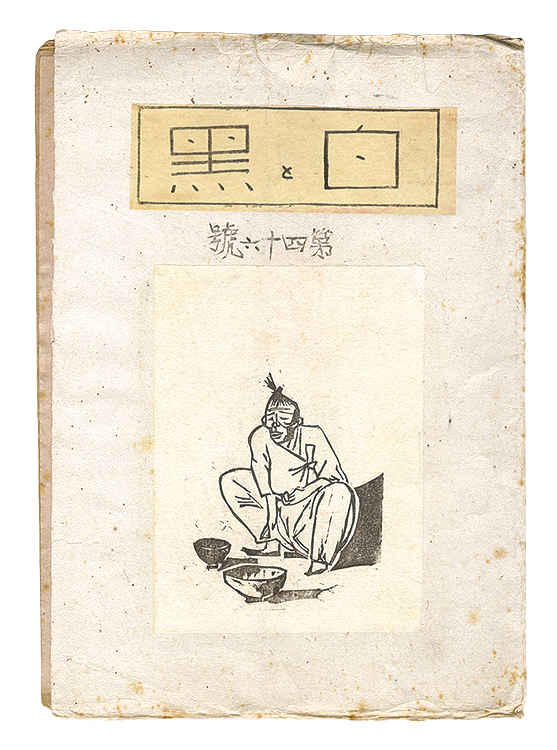 白と黑
第四十六號